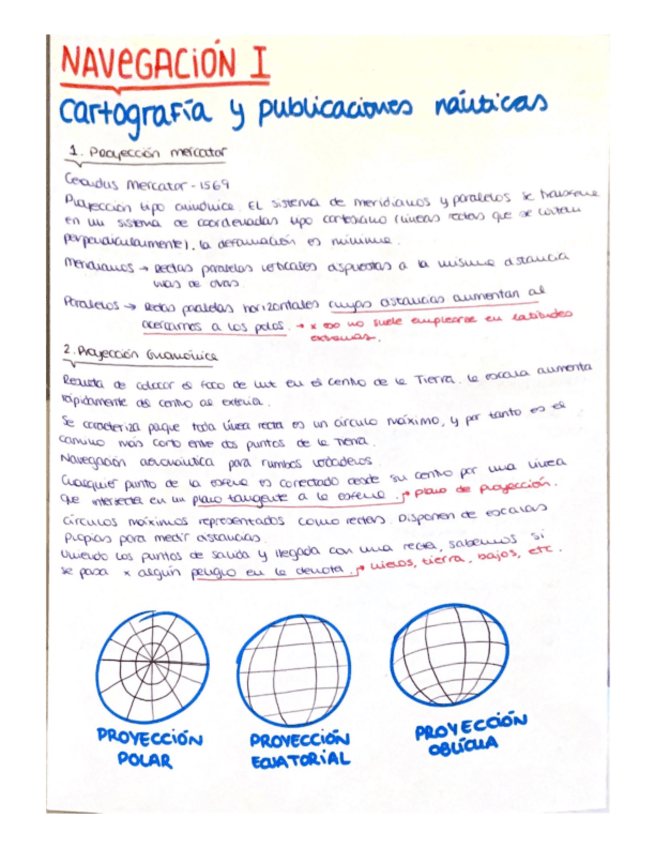 NAVEGACIÓN I
Cartografía y publicaciones náuticas
1. Proyección mercator
Gerardus Mercator - 1569
Proyección tipo cilíndrica. El sistema de meridianos y paralelos se transforma
en un sistema de coordenadas tipo cartesiano (líneas rectas que se cortan
perpendicularmente), la deformación es mínima.
Meridianos → Rectas paralelas verticales dispuestas a la misma distancia
unas de otras.
Paralelos → Rectas paralelas horizontales cuyas distancias aumentan al
acercarnos a los polos. → x eso no suele emplearse en latitudes
extremas.
2. Proyección Gnomónica
Resulta de colocar el foco de luz en el centro de la Tierra. la escala aumenta
rápidamente del centro al exterior.
Se caracteriza porque toda línea recta es un círculo máximo, y por tanto es el
camino más corto entre dos puntos de la Tierra.
Navegación aeronáutica para rumbos verdaderos.
Cualquier punto de la esfera es conectado desde su centro por una línea
que intersecta en un plano tangente a la esfera. → plano de proyección.
Círculos máximos representados como rectas. Disponen de escalas
propias para medir distancias.
Uniendo los puntos de salida y llegada con una recta, sabemos si
se pasa x algún peligro en la derrota. → hielos, tierra, bajos, etc.
PROYECCIÓN
POLAR
PROYECCIÓN
ECUATORIAL
PROYECCIÓN
OBLÍCUA